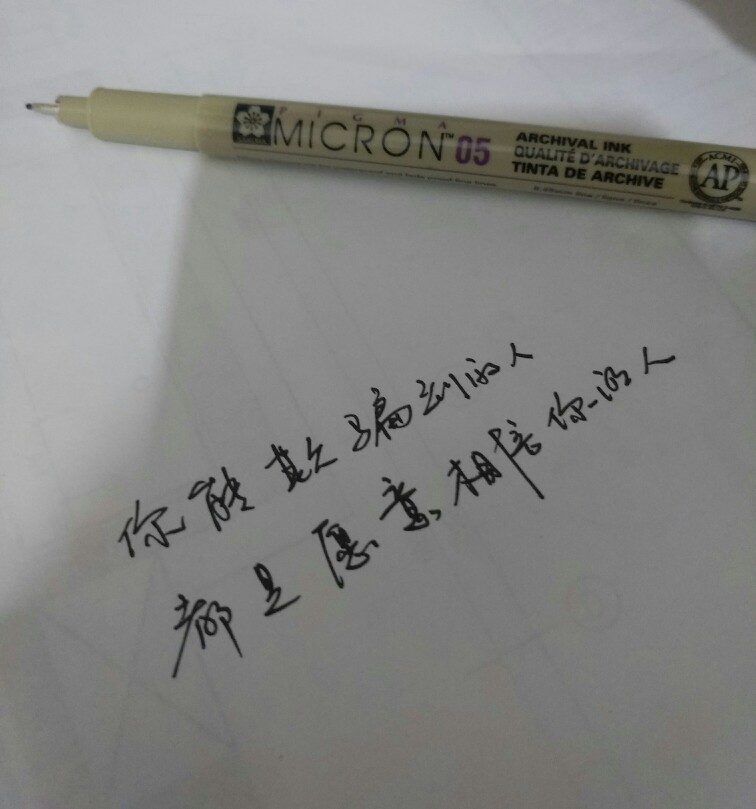 PIGMA
MICRON™ 05
ARCHIVAL INK
QUALITÉ D'ARCHIVAGE
TINTA DE ARCHIVE
ACMI
AP
你能欺骗到的人
都是愿意相信你的人